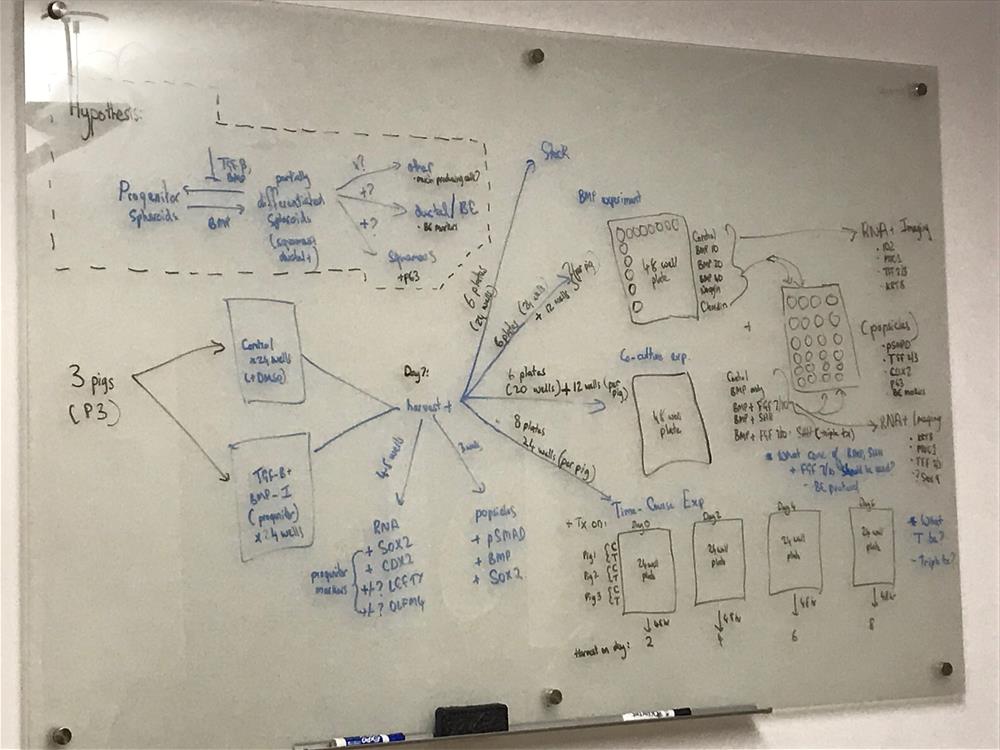 Hypothesis:
Progenitor
Spheroids
TGF-β,
BMP
BMP
partially
differentiated
spheroids
(squamous+
ductal+)
x?
+?
+?
other
• mucin producing cells?
ductal/BE
• BE markers
Squamous
+P63
3 pigs
(P3)
Control
x24 wells
(+DMSO)
TGF-B+
BMP-I
(progenitor)
x24 wells
Day 7:
harvest +
4-8 wells
3 wells
RNA
progenitor
markers
+ SOX2
+ CDX2
+/- ? LEFTY
+/- ? OLFM4
popsicles
+ pSMAD
+ BMP
+ SOX2
6 plates
(24 wells)
Stock
6 plates (24 wells)
+ 12 wells (per pig)
BMP experiment
48 well
plate
Control
BMP 10
BMP 20
BMP 40
Noggin
RNA + Imaging
• MUC1
• TFF 2/3
• KRT8
+
(popsicles)
• pSMAD
• TFF 2/3
• CDX2
P63
BE markers
6 plates
(20 wells) + 12 wells (per
pig)
Co-culture exp.
48 well
plate
Control
BMP only
BMP + FGF 7/10
BMP + SHH
BMP + FGF 7/10 + SHH (triple tx)
RNA + Imaging
• KRT8
• MUC1
• TFF 2/3
• ? Sox9
* What conc of BMP, SHH
+ FGF 7/10 should be used?
- BE protocol
8 plates
24 wells (per pig)
Time-Course Exp
+ Tx on:
Day 0
Day 2
Day 4
Day 6
Pig 1
C
T
Pig 2
C
T
Pig 3
C
T
24 well
plate
24 well
plate
24 well
plate
24 well
plate
* What
T be?
- Triple tx?
48hr
48hr
48hr
48hr
Harvest on day:
2
4
6
8
EXPO